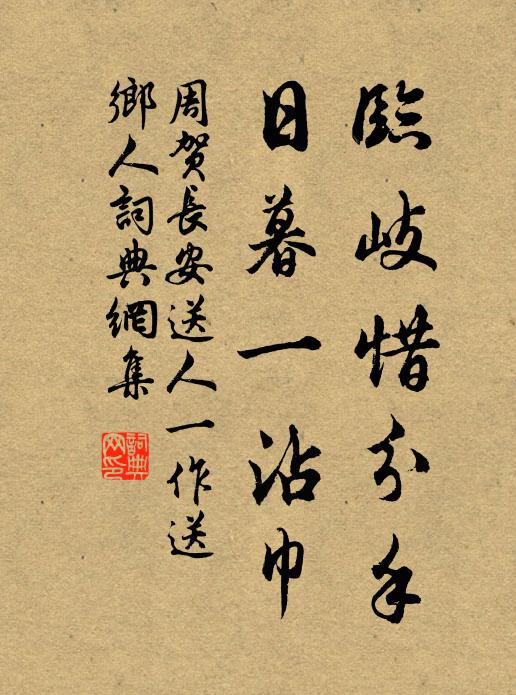 臨岐惜分手
日暮一沾巾
周賀長安送人一作送
鄉人詞典網集
詞典網印